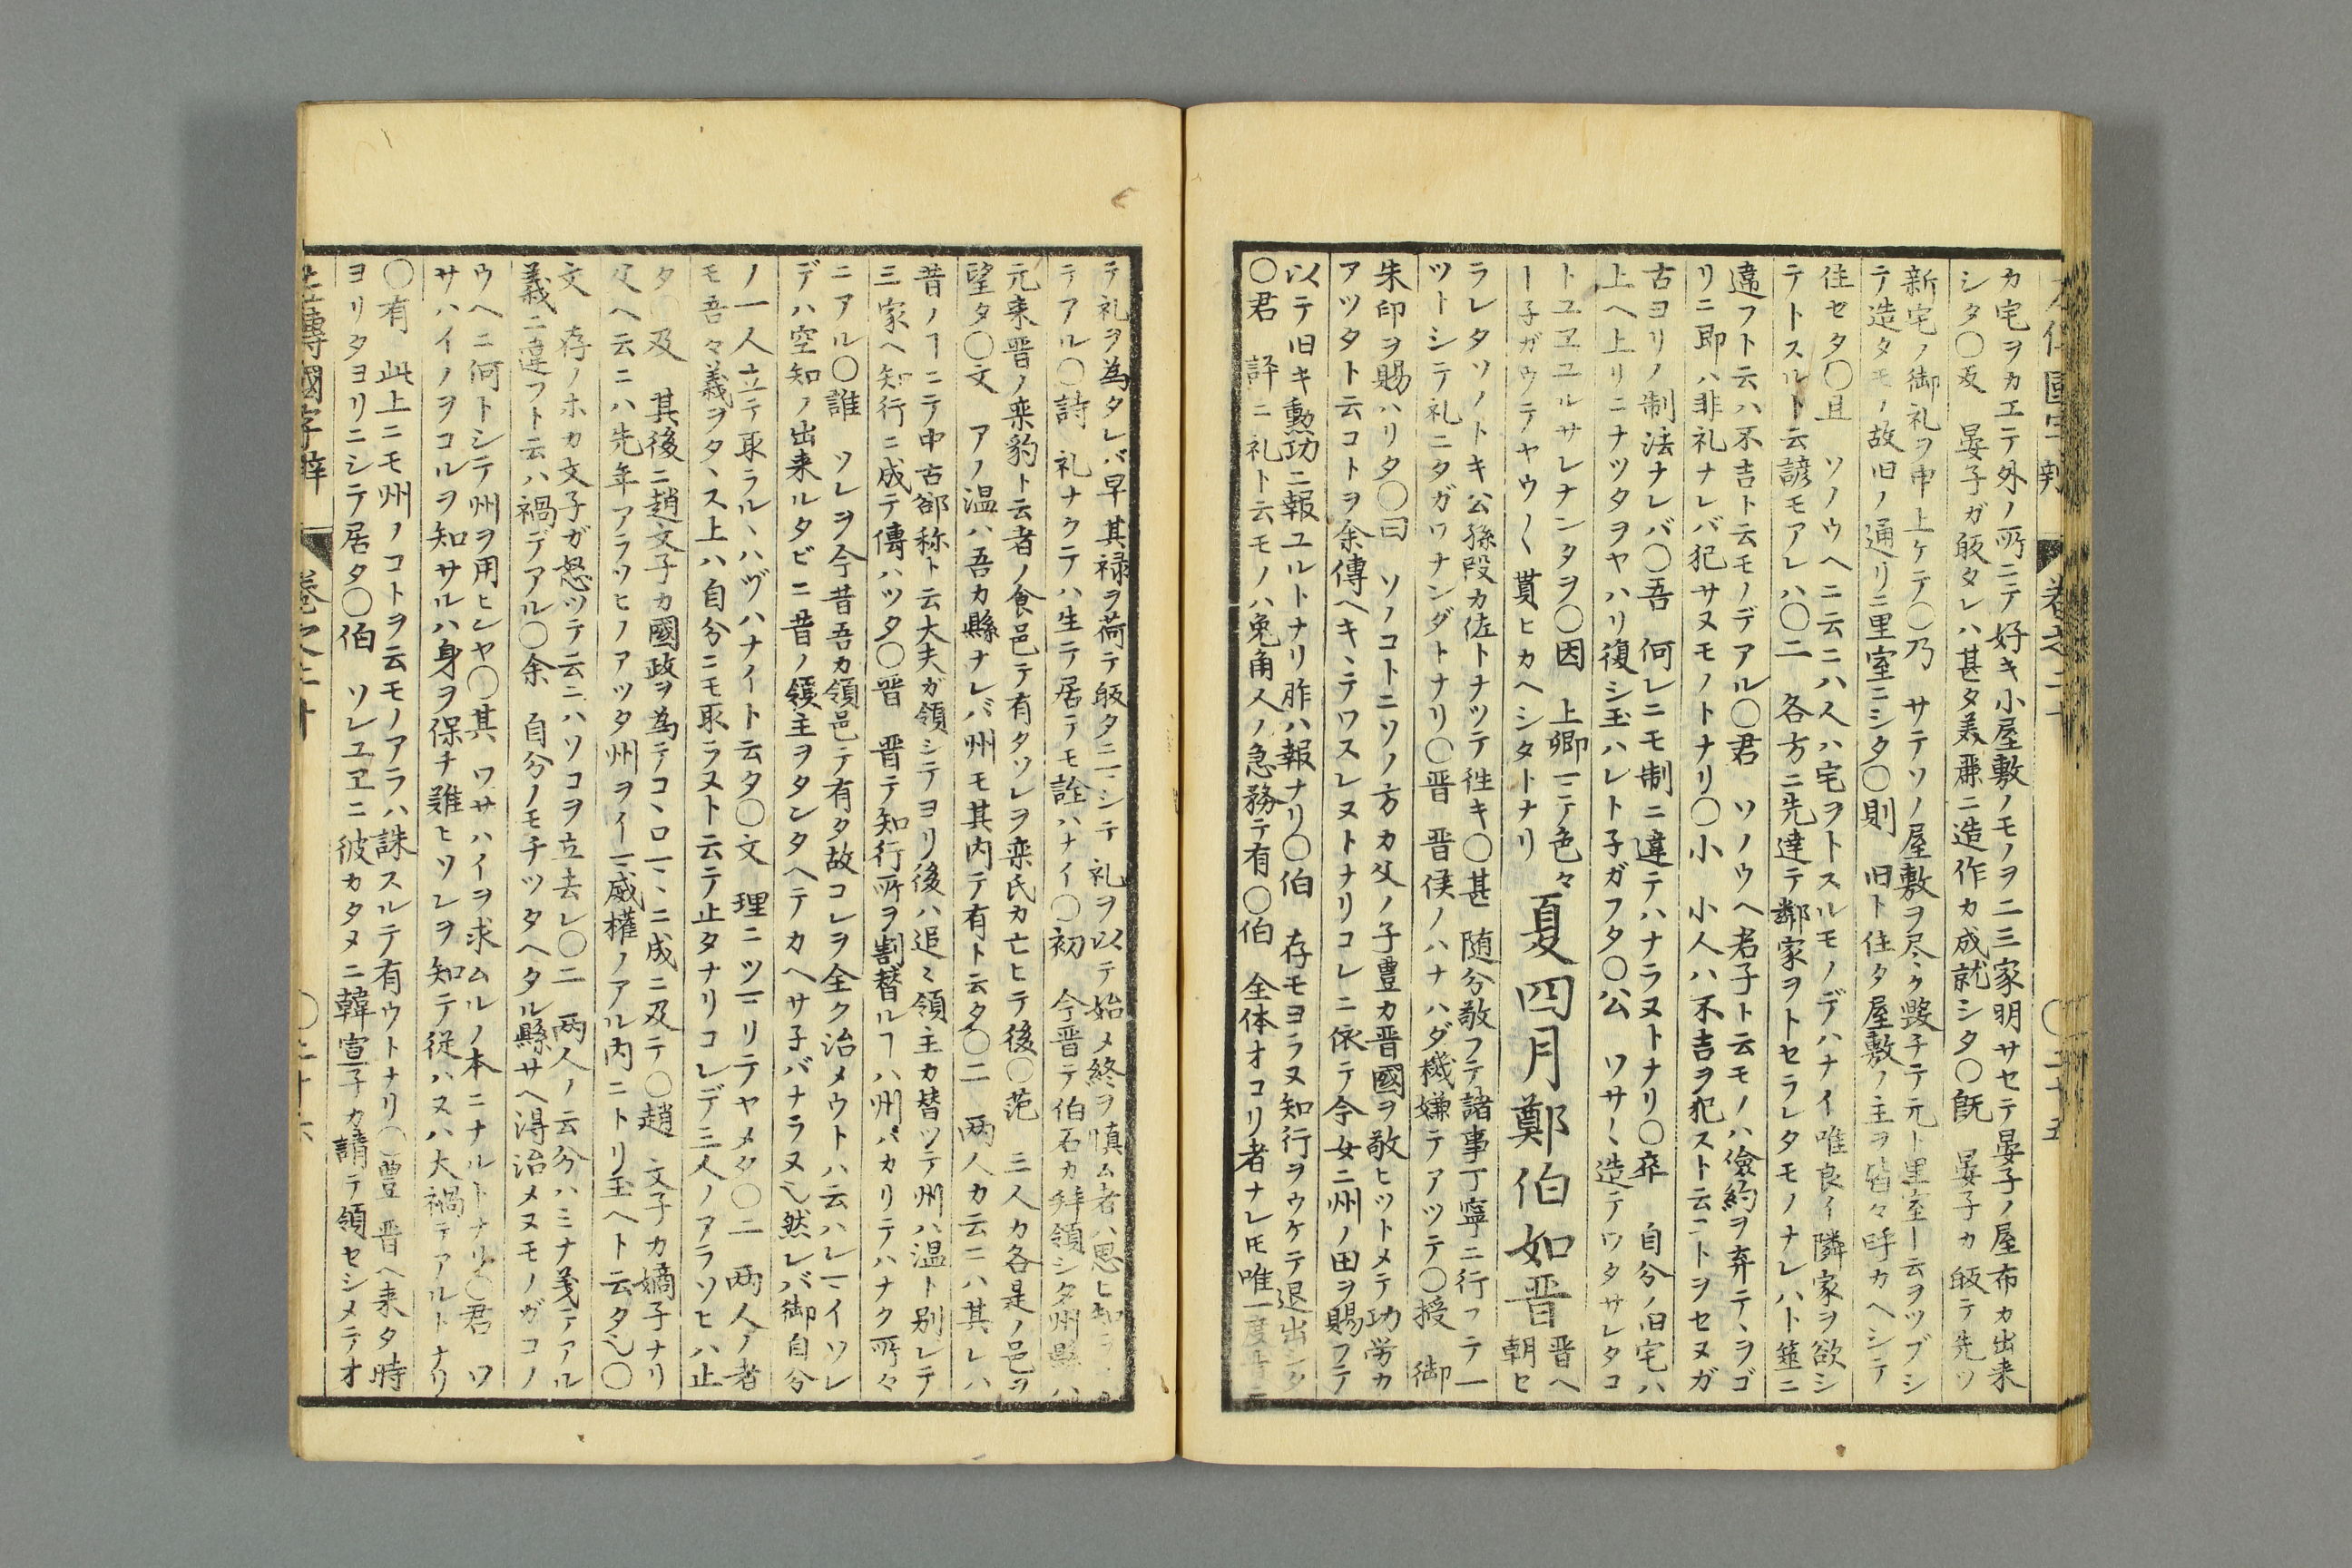 左傳國字辯 卷之二十 〇二十五
カ宅ヲカエテ外ノ所ニテ好キ小屋敷ノモノヲ二三家明サセテ晏子ノ屋布カ出来
シタ〇及 晏子ガ皈タレハ甚タ美麁ニ造作カ成就シタ〇既 晏子カ皈テ先ツ
新宅ノ御礼ヲ申上ケテ〇乃 サテソノ屋敷ヲ尽ク毀チテ元ト里室ト云ヲツブシ
テ造タモノ故旧ノ通リニ里室ニシタ〇則 旧ト住タ屋敷ノ主ヲ皆々呼カヘシテ
住セタ〇且 ソノウヘニ云ニハ人ハ宅ヲトスルモノデハナイ唯良イ隣家ヲ欲シ
テトスルト云諺モアレハ〇二 各方ニ先達テ鄰家ヲトセラレタモノナレハト筮ニ
違フト云ハ不吉ト云モノデアル〇君 ソノウヘ君子ト云モノハ儉約ヲ弃テヽヲゴ
リニ即ハ非礼ナレバ犯サヌモノトナリ〇小 小人ハ不吉ヲ犯スト云コトヲセヌガ
古ヨリノ制法ナレバ〇吾 何レニモ制ニ違テハナラヌトナリ〇卒 自分ノ旧宅ハ
上ヘ上リニナツタヲヤハリ復シ玉ハレト子ガフタ〇公 ワサ〳〵造テワタサレタコ
トユヱユルサレナンタヲ〇因 上卿ニテ色々
ー子ガウテヤウ〳〵貰ヒカヘシタトナリ
夏四月鄭伯如晋
晋ヘ
朝セ
ラレタソノトキ公孫段カ佐トナツテ徃キ〇甚 随分敬フテ諸事丁寧ニ行フテ一
ツトシテ礼ニタガワナンダトナリ〇晋 晋侯ノハナハダ機嫌テアツテ〇授 御
朱印ヲ賜ハリタ〇曰 ソノコトニソノ方カ父ノ子豊カ晋國ヲ敬ヒツトメテ功労カ
アツタト云コトヲ余傳ヘキヽテワスレヌトナリコレニ依テ今女ニ州ノ田ヲ賜フテ
以テ旧キ勲功ニ報ユルトナリ胙ハ報ナリ〇伯 存モヨラヌ知行ヲウケテ退出シタ
〇君 評ニ礼ト云モノハ兎角人ノ急務テ有〇伯 全体オコリ者ナレ𪜈唯一度晋ニ
テ礼ヲ為タレバ早其禄ヲ荷テ皈タニシテ礼ヲ以テ始メ終ヲ慎ム者ハ思ヒ知
テアル〇詩 礼ナクテハ生テ居テモ詮ハナイ〇初 今晋テ伯石カ拜領シタ州縣ハ
元来晋ノ栾豹ト云者ノ食邑テ有タソレヲ栾氏カ亡ヒテ後〇范 三人カ各是ノ邑ヲ
望タ〇文 アノ温ハ吾カ縣ナレバ州モ其内テ有ト云タ〇二 两人カ云ニハ其レハ
昔ノヿニテ中古郤称ト云大夫ガ領シテヨリ後ハ追々領主カ替ツテ州ハ温ト別レテ
三家ヘ知行ニ成テ傳ハツタ〇晋 晋テ知行所ヲ割替ルヿハ州バカリテハナク所々
ニアル〇誰 ソレヲ今昔吾カ領邑テ有タ故コレヲ全ク治メウトハ云ハレマイソレ
デハ空知ノ出来ルタビニ昔ノ領主ヲタンタヘテカヘサ子バナラヌ也然レバ御自分
ノ一人立テ取ラルヽハヅハナイト云タ〇文 理ニツマリテヤメタ〇二 两人ノ者
モ吾々義ヲタヽス上ハ自分ニモ取ラヌト云テ止タナリコレデ三人ノアラソヒハ止
タ〇及 其後ニ趙文子カ國政ヲ為テコヽロマヽニ成ニ及テ〇趙 文子カ嫡子ナリ
父ヘ云ニハ先年アラソヒノアツタ州ヲイマ威權ノアル内ニトリ玉ヘト云タ也〇
文 存ノホカ文子ガ怒ツテ云ニハソコヲ立去レ〇二 两人ノ云分ハミナ義テアル
義ニ違フト云ハ禍デアル〇余 自分ノモチツタヘタル縣サヘ得治メヌモノガコノ
ウヘニ何トシテ州ヲ用ヒンヤ〇其 ワサハイヲ求ムルノ本ニナルトナリ〇君 ワ
サハイノヲコルヲ知サルハ身ヲ保チ難ヒソレヲ知テ從ハヌハ大禍テアルトナリ
〇有 此上ニモ州ノコトヲ云モノアラハ誅スルテ有ウトナリ〇豊 晋ヘ来タ時
ヨリタヨリニシテ居タ〇伯 ソレユヱニ彼カタメニ韓宣子カ請テ領セシメテオ
左傳國字辯 卷之二十 〇二十六